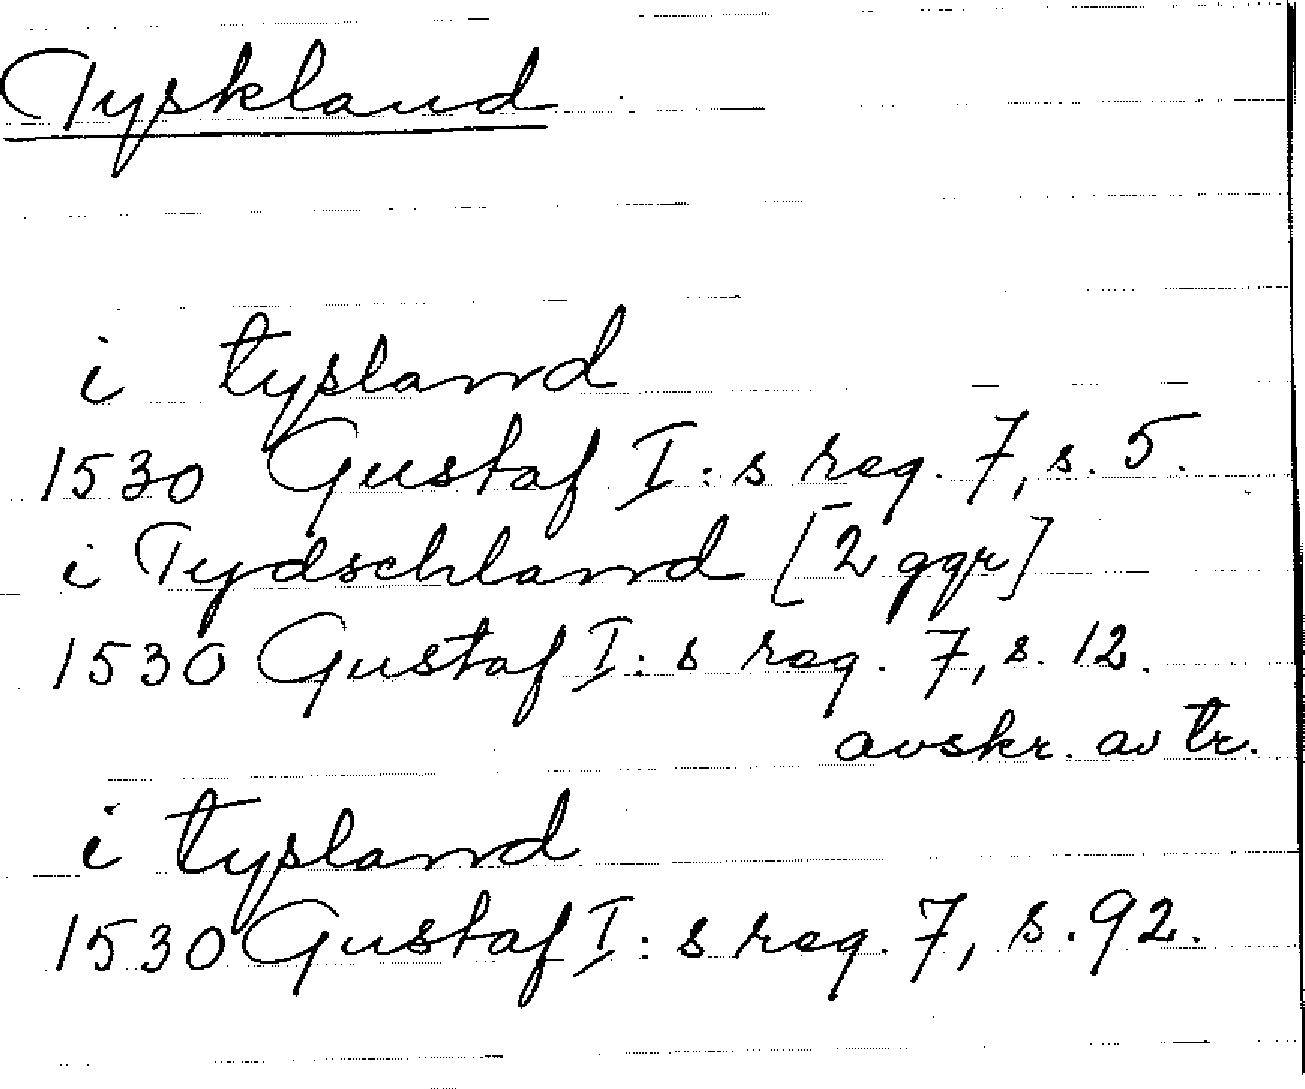 Tyskland
i tysland
1530 Gustaf I:s reg. 7, s. 5.
i Tydschland [2 ggr]
1530 Gustaf I:s reg. 7, s. 12.
avskr. av tr.
i tysland
1530 Gustaf I:s reg. 7, s. 92.